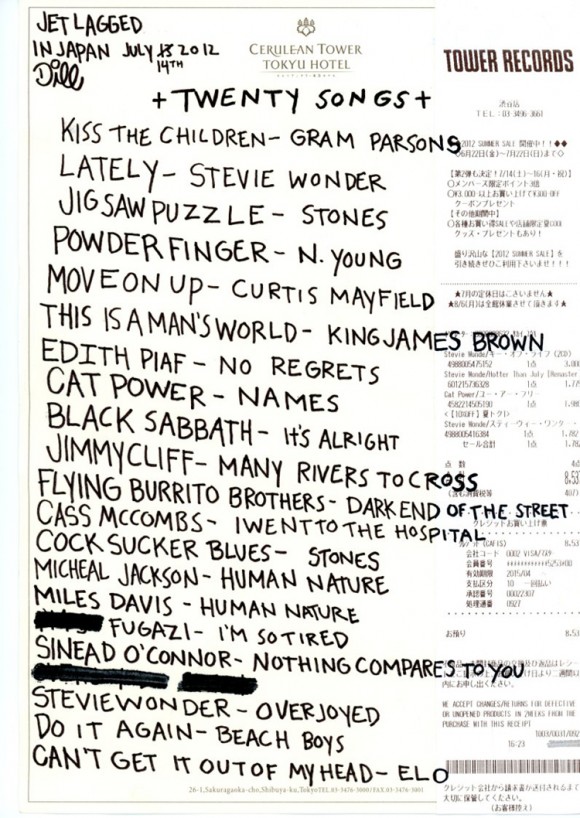 JET LAGGED
IN JAPAN JULY 13 2012
14TH
Dill
CERULEAN TOWER
TOKYU HOTEL
+ TWENTY SONGS +
KISS THE CHILDREN- GRAM PARSONS
LATELY- STEVIE WONDER
JIGSAW PUZZLE - STONES
POWDERFINGER - N. YOUNG
MOVE ON UP - CURTIS MAYFIELD
THIS IS A MAN'S WORLD - KING JAMES BROWN
EDITH PIAF - NO REGRETS
CAT POWER - NAMES
BLACK SABBATH - IT'S ALRIGHT
JIMMY CLIFF - MANY RIVERS TO CROSS
FLYING BURRITO BROTHERS - DARK END OF THE STREET
CASS MCCOMBS - I WENT TO THE HOSPITAL
COCK SUCKER BLUES - STONES
MICHEAL JACKSON - HUMAN NATURE
MILES DAVIS - HUMAN NATURE
FUGAZI - I'M SO TIRED
SINEAD O'CONNOR - NOTHING COMPARES TO YOU
STEVIE WONDER - OVERJOYED
DO IT AGAIN - BEACH BOYS
CAN'T GET IT OUT OF MY HEAD - ELO
26-1, Sakuragaoka-cho, Shibuya-ku, Tokyo TEL 03-3476-3000/FAX.03-3476-3001
TOWER RECORDS
渋谷店
TEL:03-3496-3661
2012 SUMMER SALE 開催中!!◆◆
6月22日(金)~7月22日(日)まで◇
【第2弾も決定!7/14(土)~16(月・祝)】
○メンバーズ限定ポイント3倍
クーポンプレゼント
【その他期間中】
グッズ・プレゼントもあり!
盛り沢山な【2012 SUMMER SALE】を
引き続きぜひご利用下さいませ!!!
★7月の定休日はございません★
★8/6(月)は全館休業させて頂きます★
Stevie Wonde/キー・オブ・ライフ (2CD)
4988005475152 1点
Stevie Wonde/Hotter Than July [Remaster
601215736328 1点
Cat Power/ユー・アー・フリー
4582214505190 1点
<【10%OFF】夏トクレ
Stevie Wonder/スティーヴィー・ワンダー・
4988005416384 1点
セール合計 1点
点 数 4点
クレジットお買い上げ票
会社コード 0002 VISA/マスタ
会員番号
有効期限 2015/04
支払区分 10 一回払い
承認番号 0002307
処理通番 0927
お預り 8,53
内にお申し出ください。
WE ACCEPT CHANGES/RETURNS FOR DEFECTIVE
OR UNOPENED PRODUCTS IN 2WEEKS FROM THE
PURCHASE WITH THIS RECEIPT
1003/0031/092
16:23
クレジット会社から請求書が送付されるまで
大切に保管してください。
(お客様控え)